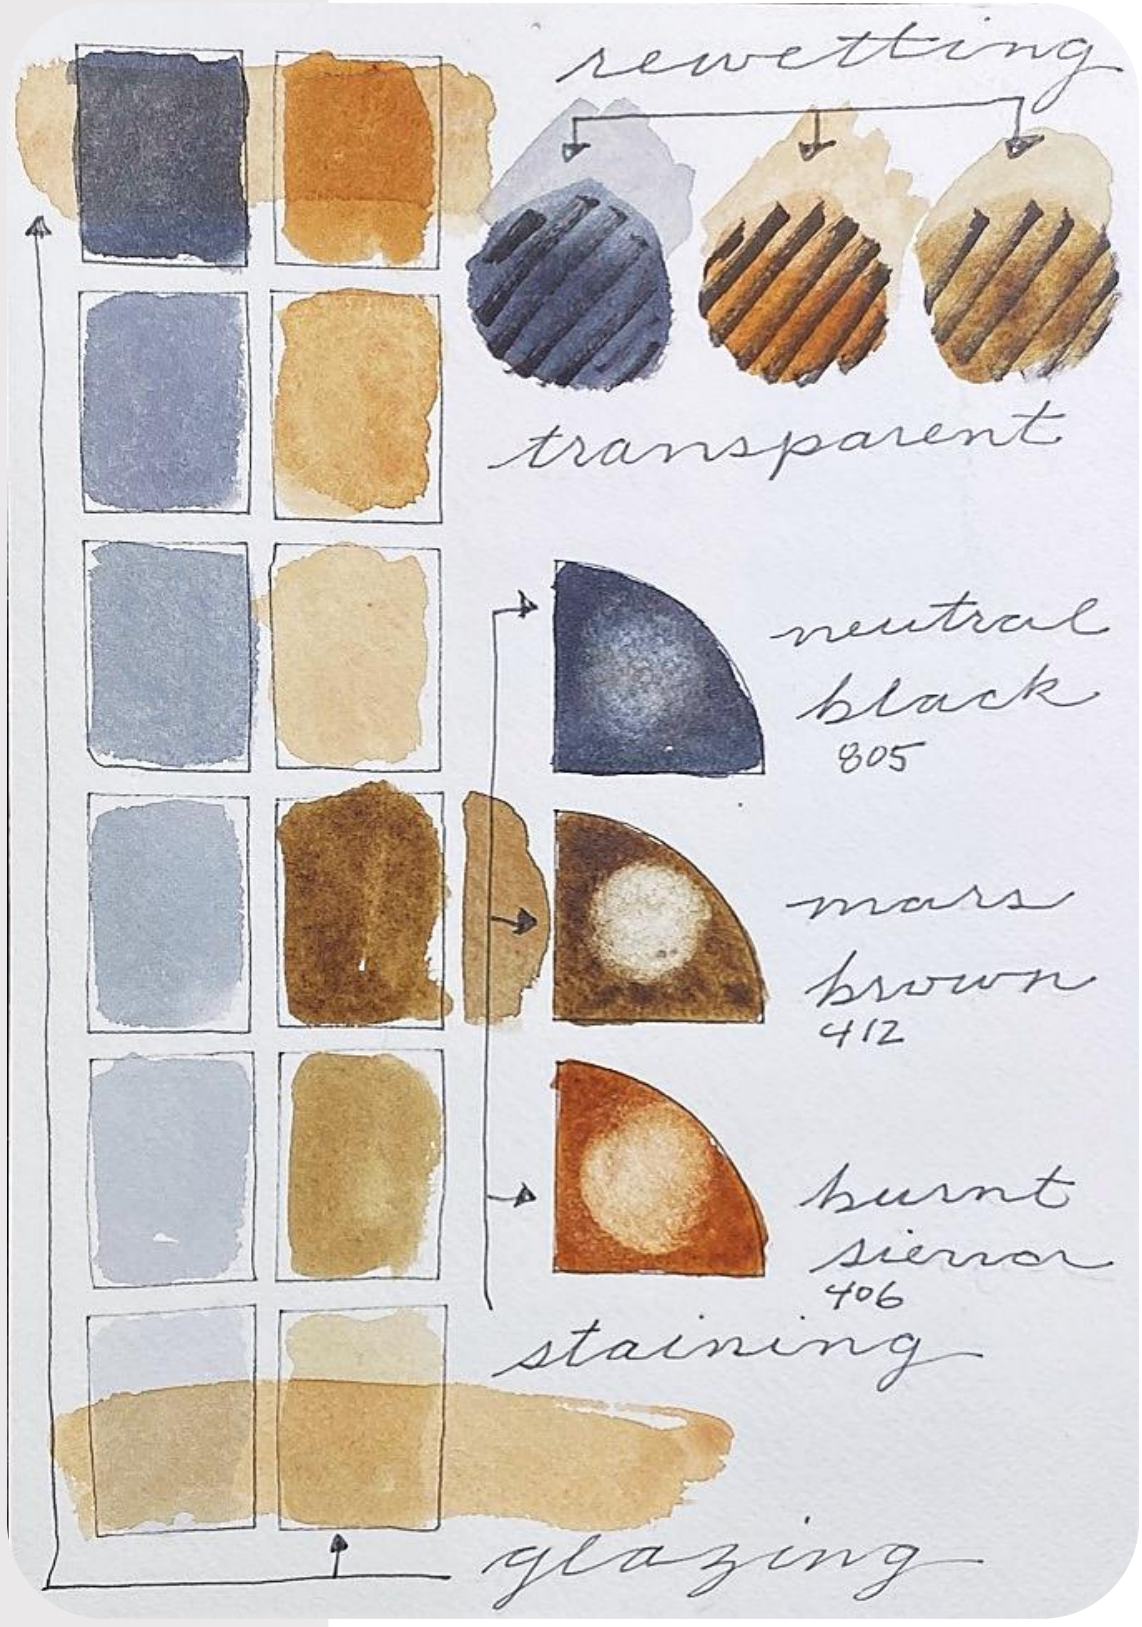 rewetting
transparent
neutral
black
805
mars
brown
412
burnt
sienna
406
staining
glazing